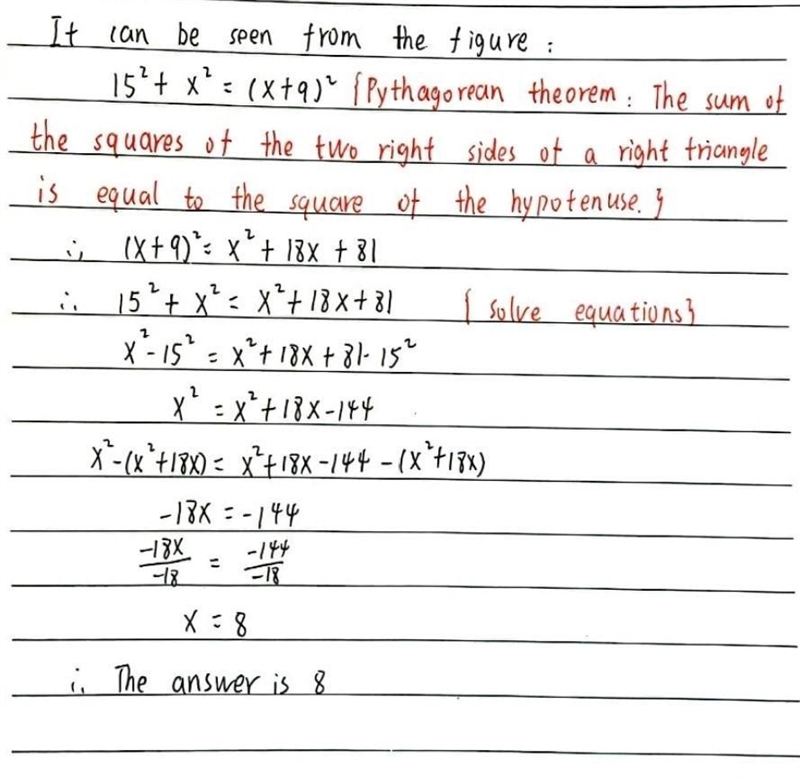 It can be seen from the figure:
15² + x² = (x+9)² {Pythagorean theorem: The sum of
the squares of the two right sides of a right triangle
is equal to the square of the hypotenuse.}
∴ (x+9)² = x² + 18x + 81
∴ 15² + x² = x² + 18x + 81 {solve equations}
x² - 15² = x² + 18x + 81 - 15²
x² = x² + 18x - 144
x² - (x² + 18x) = x² + 18x - 144 - (x² + 18x)
-18x = -144
-18x/-18 = -144/-18
x = 8
∴ The answer is 8